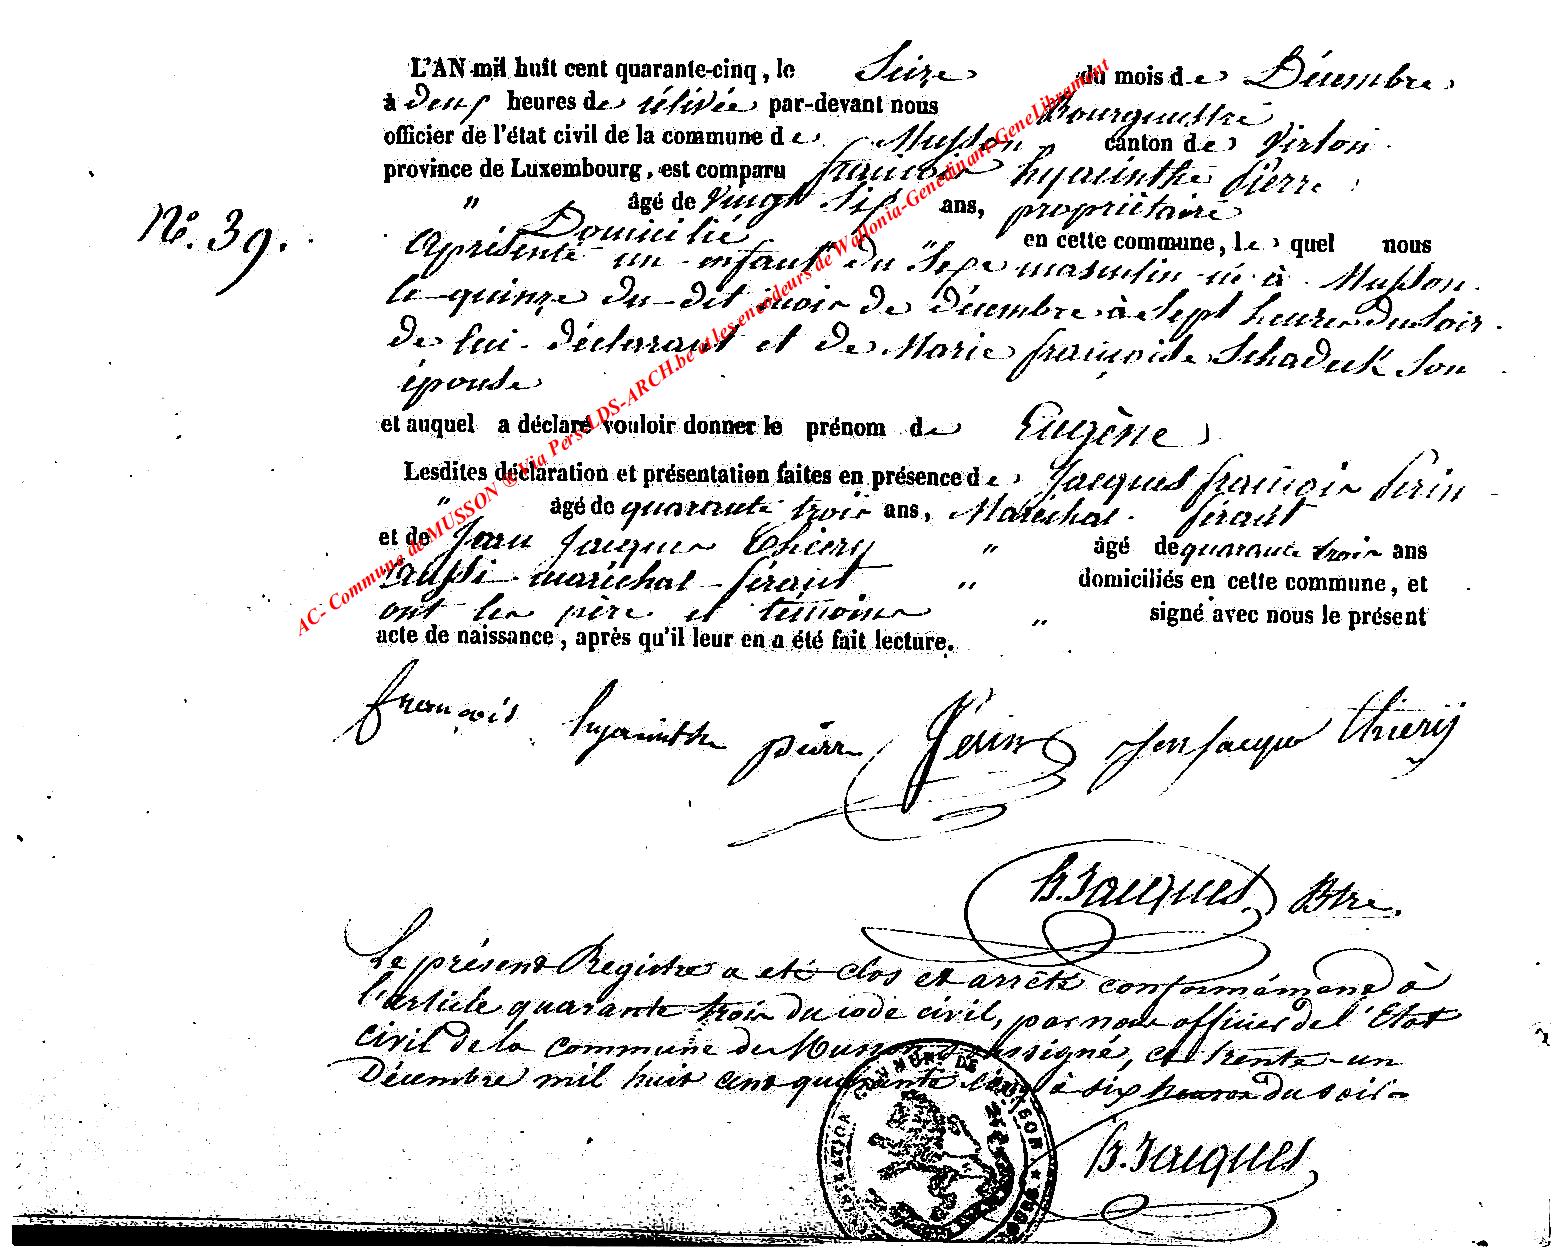 L'AN mil huit cent quarante-cinq, le Seize du mois de Décembre
à deux heures de rélévée par-devant nous Bourguestre
officier de l'état civil de la commune de Musson canton de Virton.
province de Luxembourg, est comparu françois hyacinthe Pierre
" âgé de Vingt Six ans, propriétaire
Domicilié en cette commune, le quel nous
N°. 39.
aprésenté un enfant du Sexe masculin né à Musson.
le quinze du dit mois de décembre à Sept heures du Soir.
de lui déclarant et de Marie françoise Schadeck Son
épouse
et auquel a déclaré vouloir donner le prénom de Eugène
Lesdites déclaration et présentation faites en présence de Jacques françois Périn
" âgé de quarante trois ans, Maréchal férant
et de Jean Jacques Thiery " âgé de quarante trois ans
aussi maréchal férant " domiciliés en cette commune, et
ont les père et témoins " signé avec nous le présent
acte de naissance, après qu'il leur en a été fait lecture.
AC- Commune de MUSSON ® Via Pers-LDS-ARCH.be et les encodeurs de Wallonia-Genedinant-GeneLibramont
françois hyacinthe pierre Périn Jen Jacque Thierÿ
B. Jacques, Btre.
Le présent Registre a eté clos et arrêté conformément à
l'article quarante trois du code civil, par nous officier de l'Etat
civil de la commune de Musson soussigné, ce trente-un
Décembre mil huit cent quarante cinq à six heures du soir
B. Jacques
COMMUNE DE MUSSON